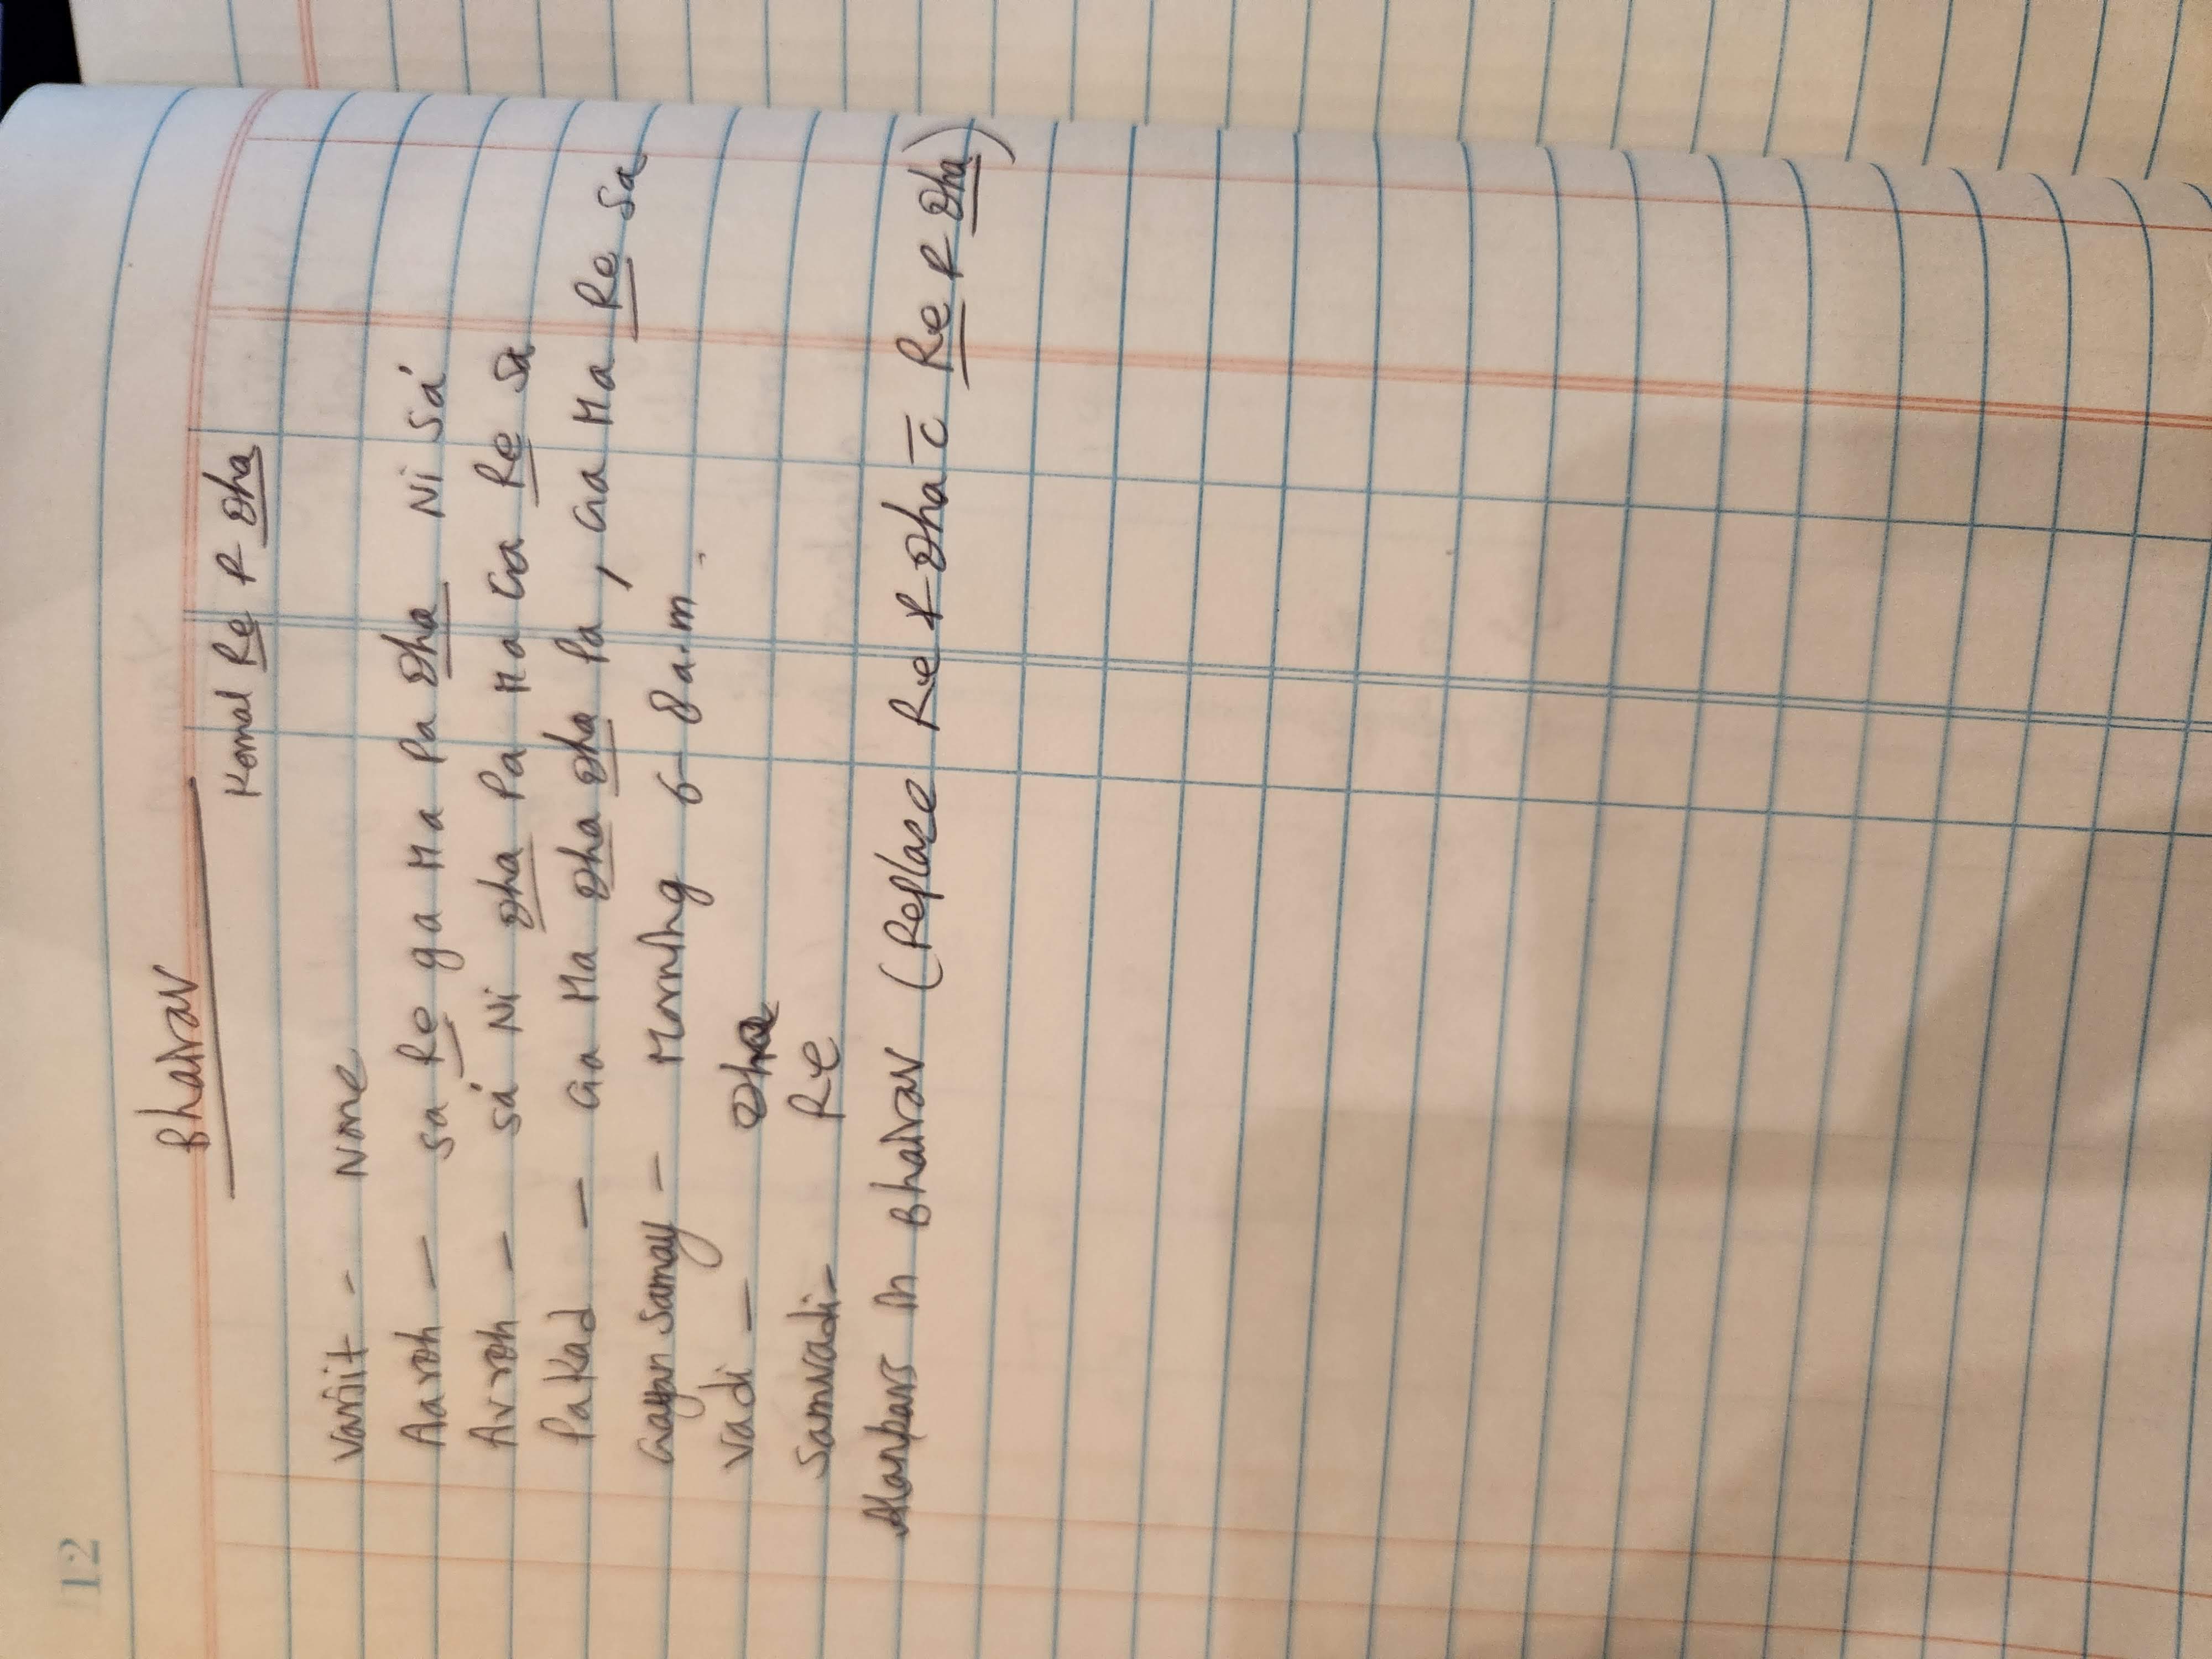 12
Bhairav
Komal Re & Dha
Varjit - None
Aaroh - Sa Re ga Ma Pa Dha Ni Sá
Avroh - Sá Ni Dha Pa Ma Ga Re Sa
Pakad - Ga Ma Dha Dha Pa, Ga Ma Re Sa
Gayan Samay - Morning 6-8 a.m.
Vadi - Dha
Samvadi - Re
Alankars in Bhairav (Replace Re & Dha c̅ Re & Dha)